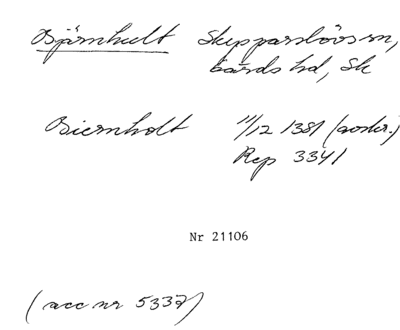 Björnhult Skepparslövs sn,
Gärds hd, Sk
Biernholt 11/12 1381 (avskr.)
Rep 3341
Nr 21106
(acc nr 5337)